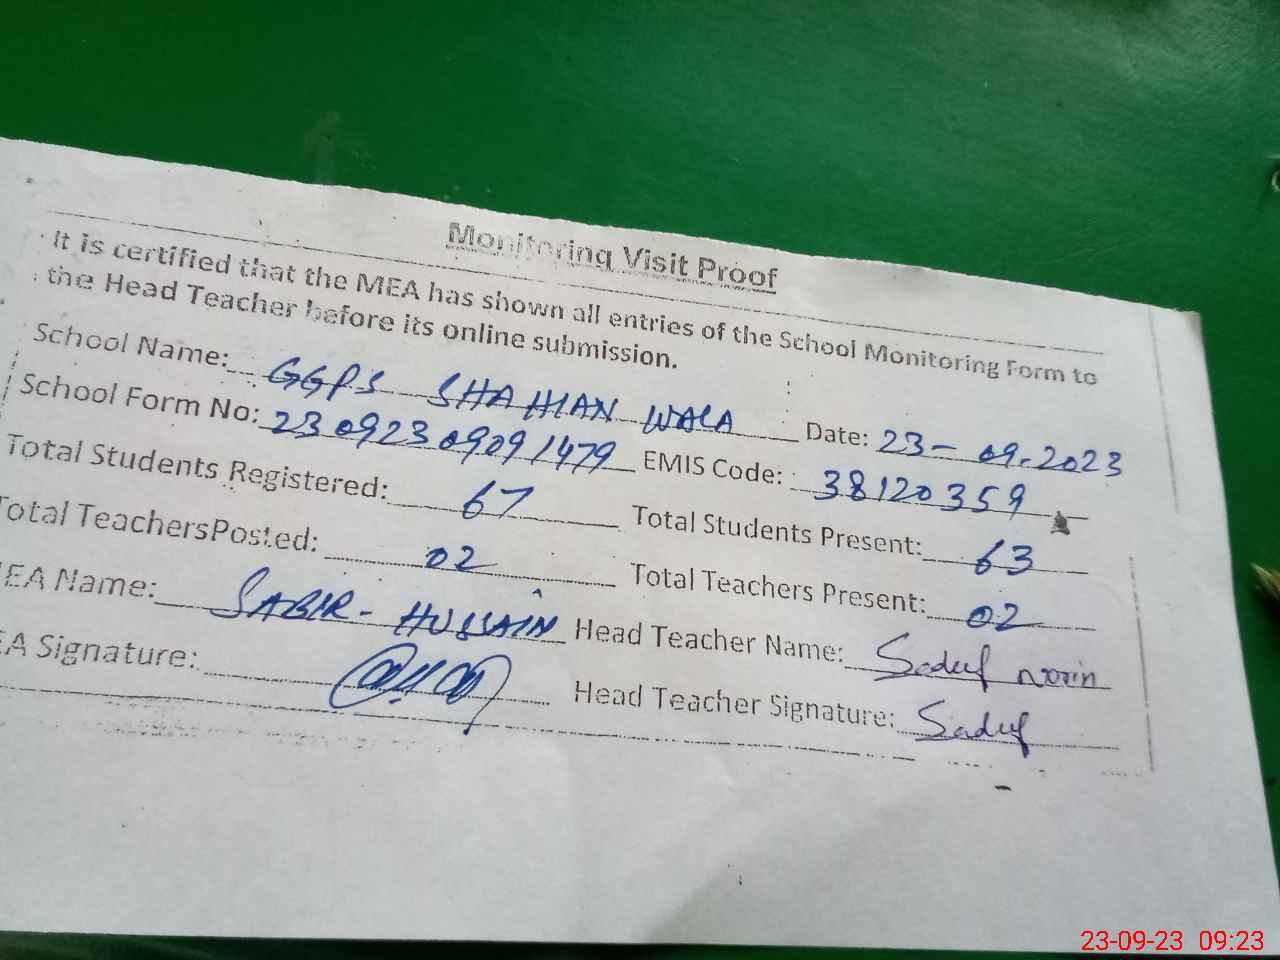 Monitoring Visit Proof
It is certified that the MEA has shown all entries of the School Monitoring Form to
the Head Teacher before its online submission.
School Name: GGPS SHAHIAN WALA Date: 23-09-2023
School Form No: 23092309091479 EMIS Code: 38120359
Total Students Registered: 67 Total Students Present: 63
Total TeachersPosted: 02 Total Teachers Present: 02
EA Name: SABIR-HUSSAIN Head Teacher Name: Saduf norin
EA Signature: Head Teacher Signature: Saduf
23-09-23 09:23